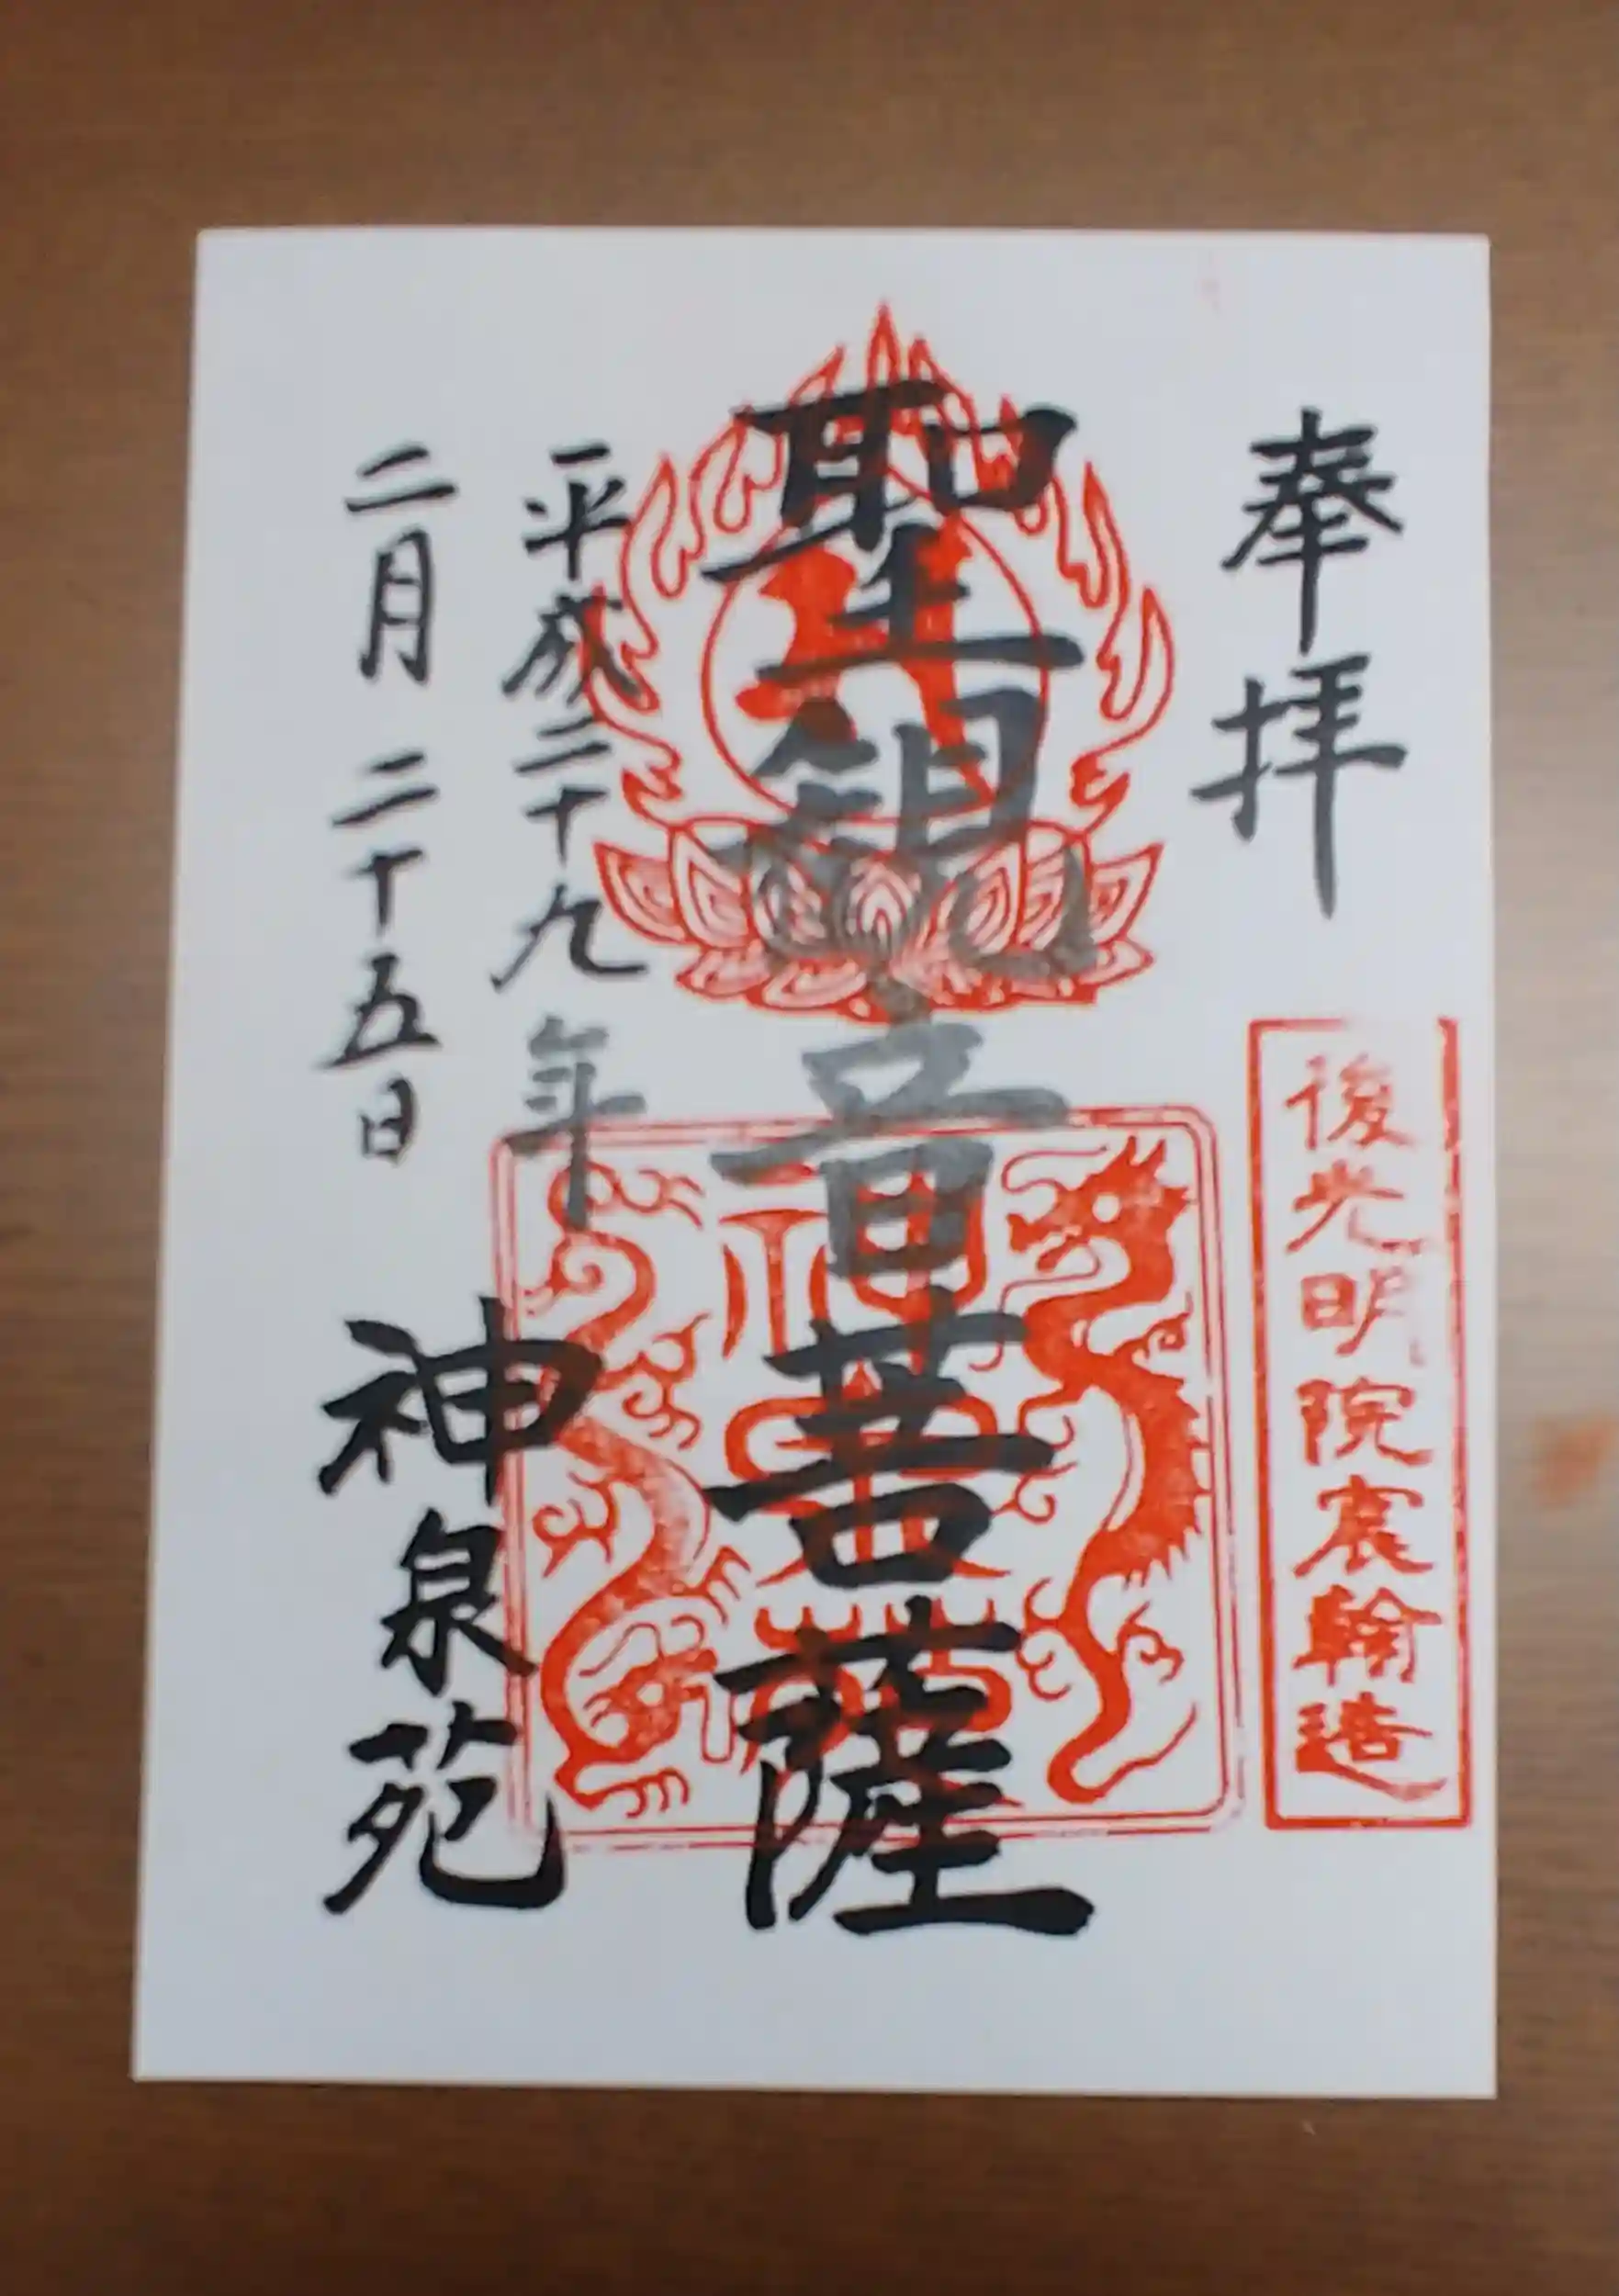 奉拝
後光明院宸翰造
聖観音菩薩
平成二十九年
二月二十五日
神泉苑